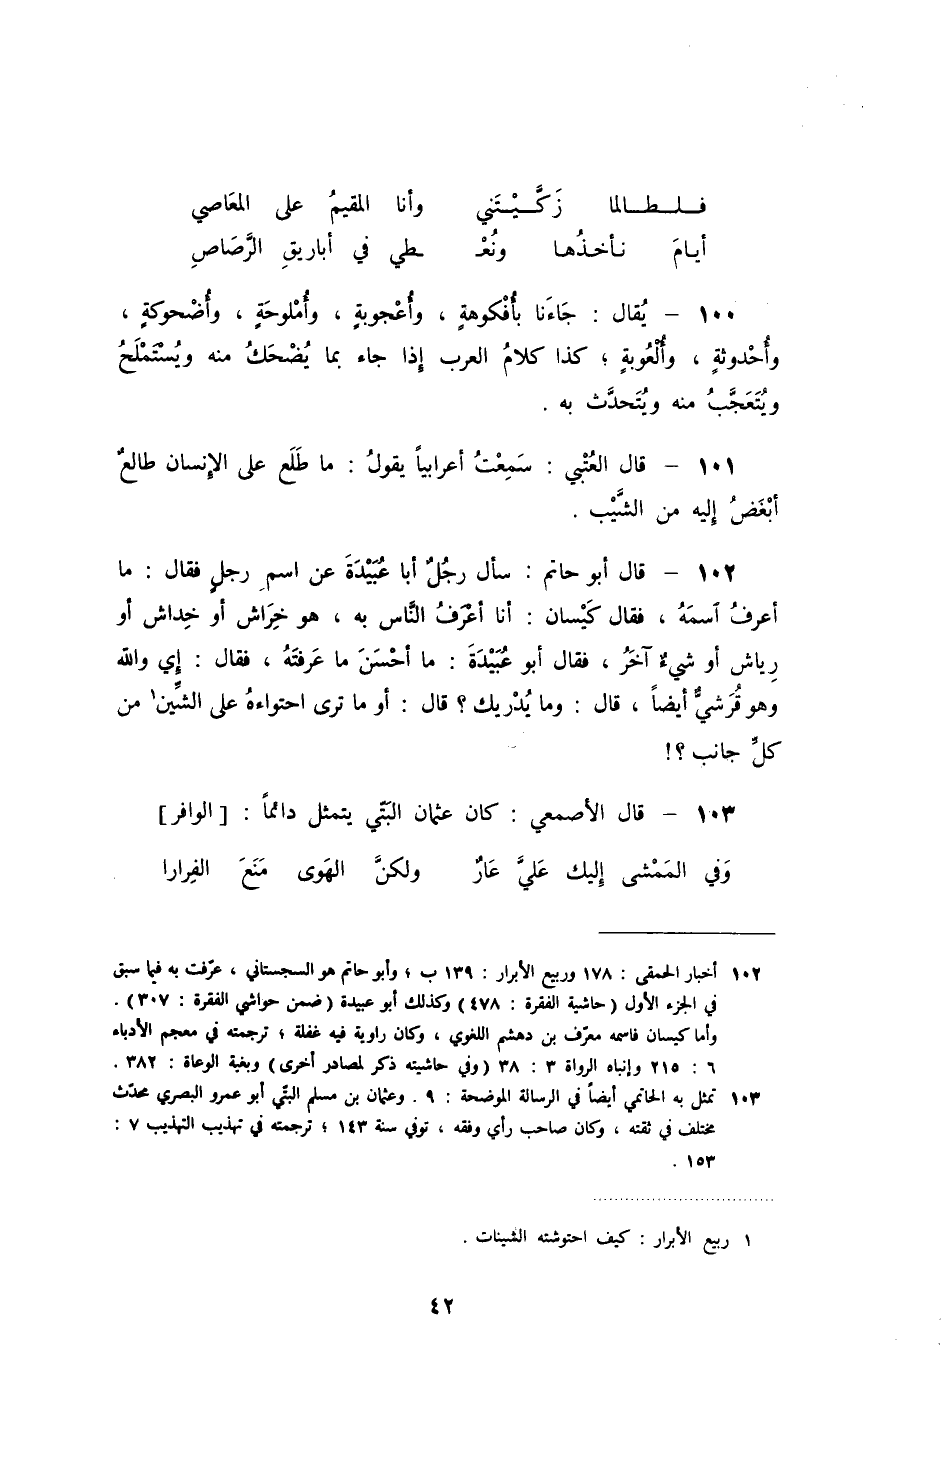 فلطالما زَكَّيْتَني وأنا المقيمُ على المعَاصي
أيامَ نأخذُها ونُعْـ ـطي في أباريقِ الرَّصَاصِ
١٠٠ – يُقال : جَاءَنا بأُفْكوهةٍ ، وأُعْجوبةٍ ، وأُمْلوحَةٍ ، وأُضْحوكةٍ ،
وأُحْدوثةٍ ، وأُلْعُوبةٍ ؛ كذا كلامُ العرب إذا جاء بما يُضْحَكُ منه ويُسْتَمْلَحُ
ويُتَعَجَّبُ منه ويُتَحدَّث به .
١٠١ – قال العُتْبي : سَمِعْتُ أعرابياً يقولُ : ما طَلَع على الإنسان طالعٌ
أبْغَضُ إليه من الشَّيْب .
١٠٢ – قال أبو حاتم : سأل رجُلٌ أبا عُبَيْدَةَ عن اسمِ رجلٍ فقال : ما
أعرفُ آسمَهُ ، فقال كَيْسان : أنا أعْرَفُ النَّاس به ، هو خِرَاش أو خِداش أو
رِياش أو شيءٌ آخَرُ ، فقال أبو عُبَيْدَةَ : ما أحْسَنَ ما عَرفتَهُ ، فقال : إي والله
وهو قُرَشيٌّ أيضاً ، قال : وما يُدْريك ؟ قال : أو ما ترى احتواءهُ على الشِّين١ من
كلِّ جانب ؟!
١٠٣ – قال الأصمعي : كان عثمان البَتّي يتمثل دائماً : [ الوافر ]
وَفي المَمْشى إليك عَليَّ عَارٌ ولكنَّ الهَوى مَنَعَ الفِرارا
١٠٢ أخبار الحمقى : ١٧٨ وربيع الأبرار : ١٣٩ ب ؛ وأبو حاتم هو السجستاني ، عرّفت به فيما سبق
في الجزء الأول (حاشية الفقرة : ٤٧٨) وكذلك أبو عبيدة (ضمن حواشي الفقرة : ٣٠٧) .
وأما كيسان فاسمه معرّف بن دهشم اللغوي ، وكان راوية فيه غفلة ؛ ترجمته في معجم الأدباء
٦ : ٢١٥ وإنباه الرواة ٣ : ٣٨ (وفي حاشيته ذكر لمصادر أخرى) وبغية الوعاة : ٣٨٢ .
١٠٣ تمثل به الحاتمي أيضاً في الرسالة الموضحة : ٩ . وعثمان بن مسلم البتّي أبو عمرو البصري محدّث
مختلف في ثقته ، وكان صاحب رأي وفقه ، توفي سنة ١٤٣ ؛ ترجمته في تهذيب التهذيب ٧ :
١٥٣ .
١ ربيع الأبرار : كيف احتوشته الشينات .
٤٢